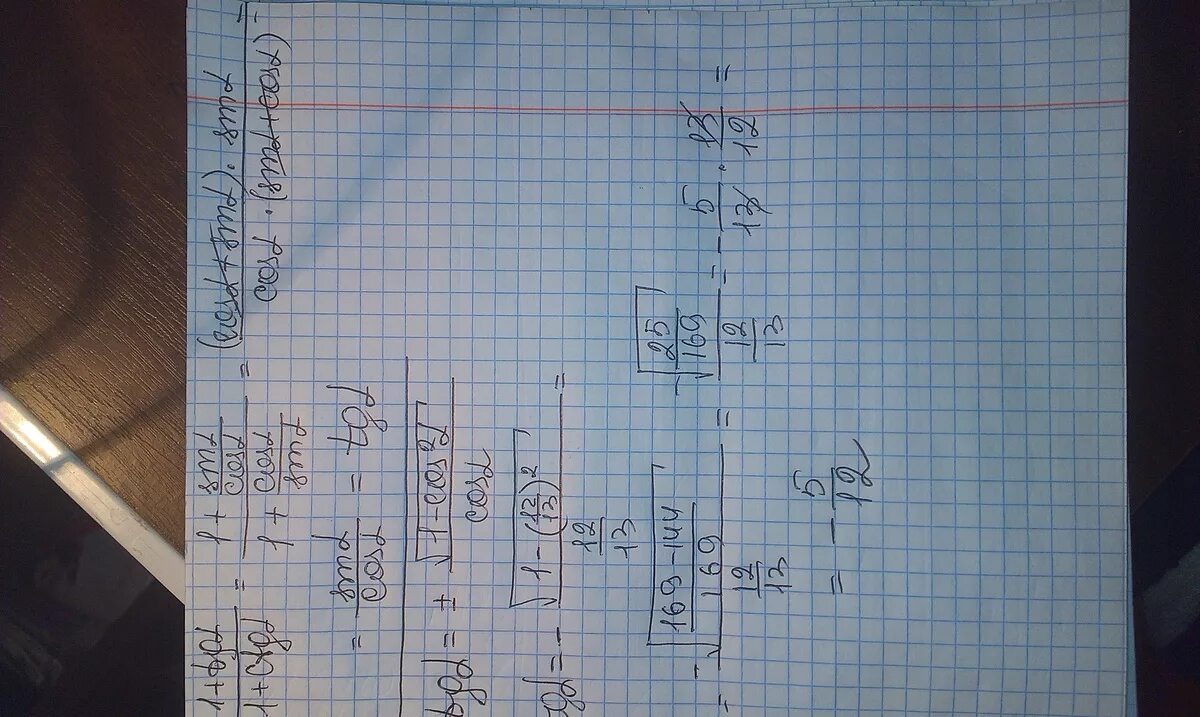 (1+tgα)/(1+ctgα) = (1+sinα/cosα)/(1+cosα/sinα) = ((cosα+sinα)·sinα)/(cosα·(sinα+cosα)) =
= sinα/cosα = tgα
tgα = ± √(1-cos²α)/cosα
tgα = - √(1-(12/13)²)/(12/13) =
= - √((169-144)/169)/(12/13) = - √(25/169)/(12/13) = - 5/13 · 13/12 =
= - 5/12